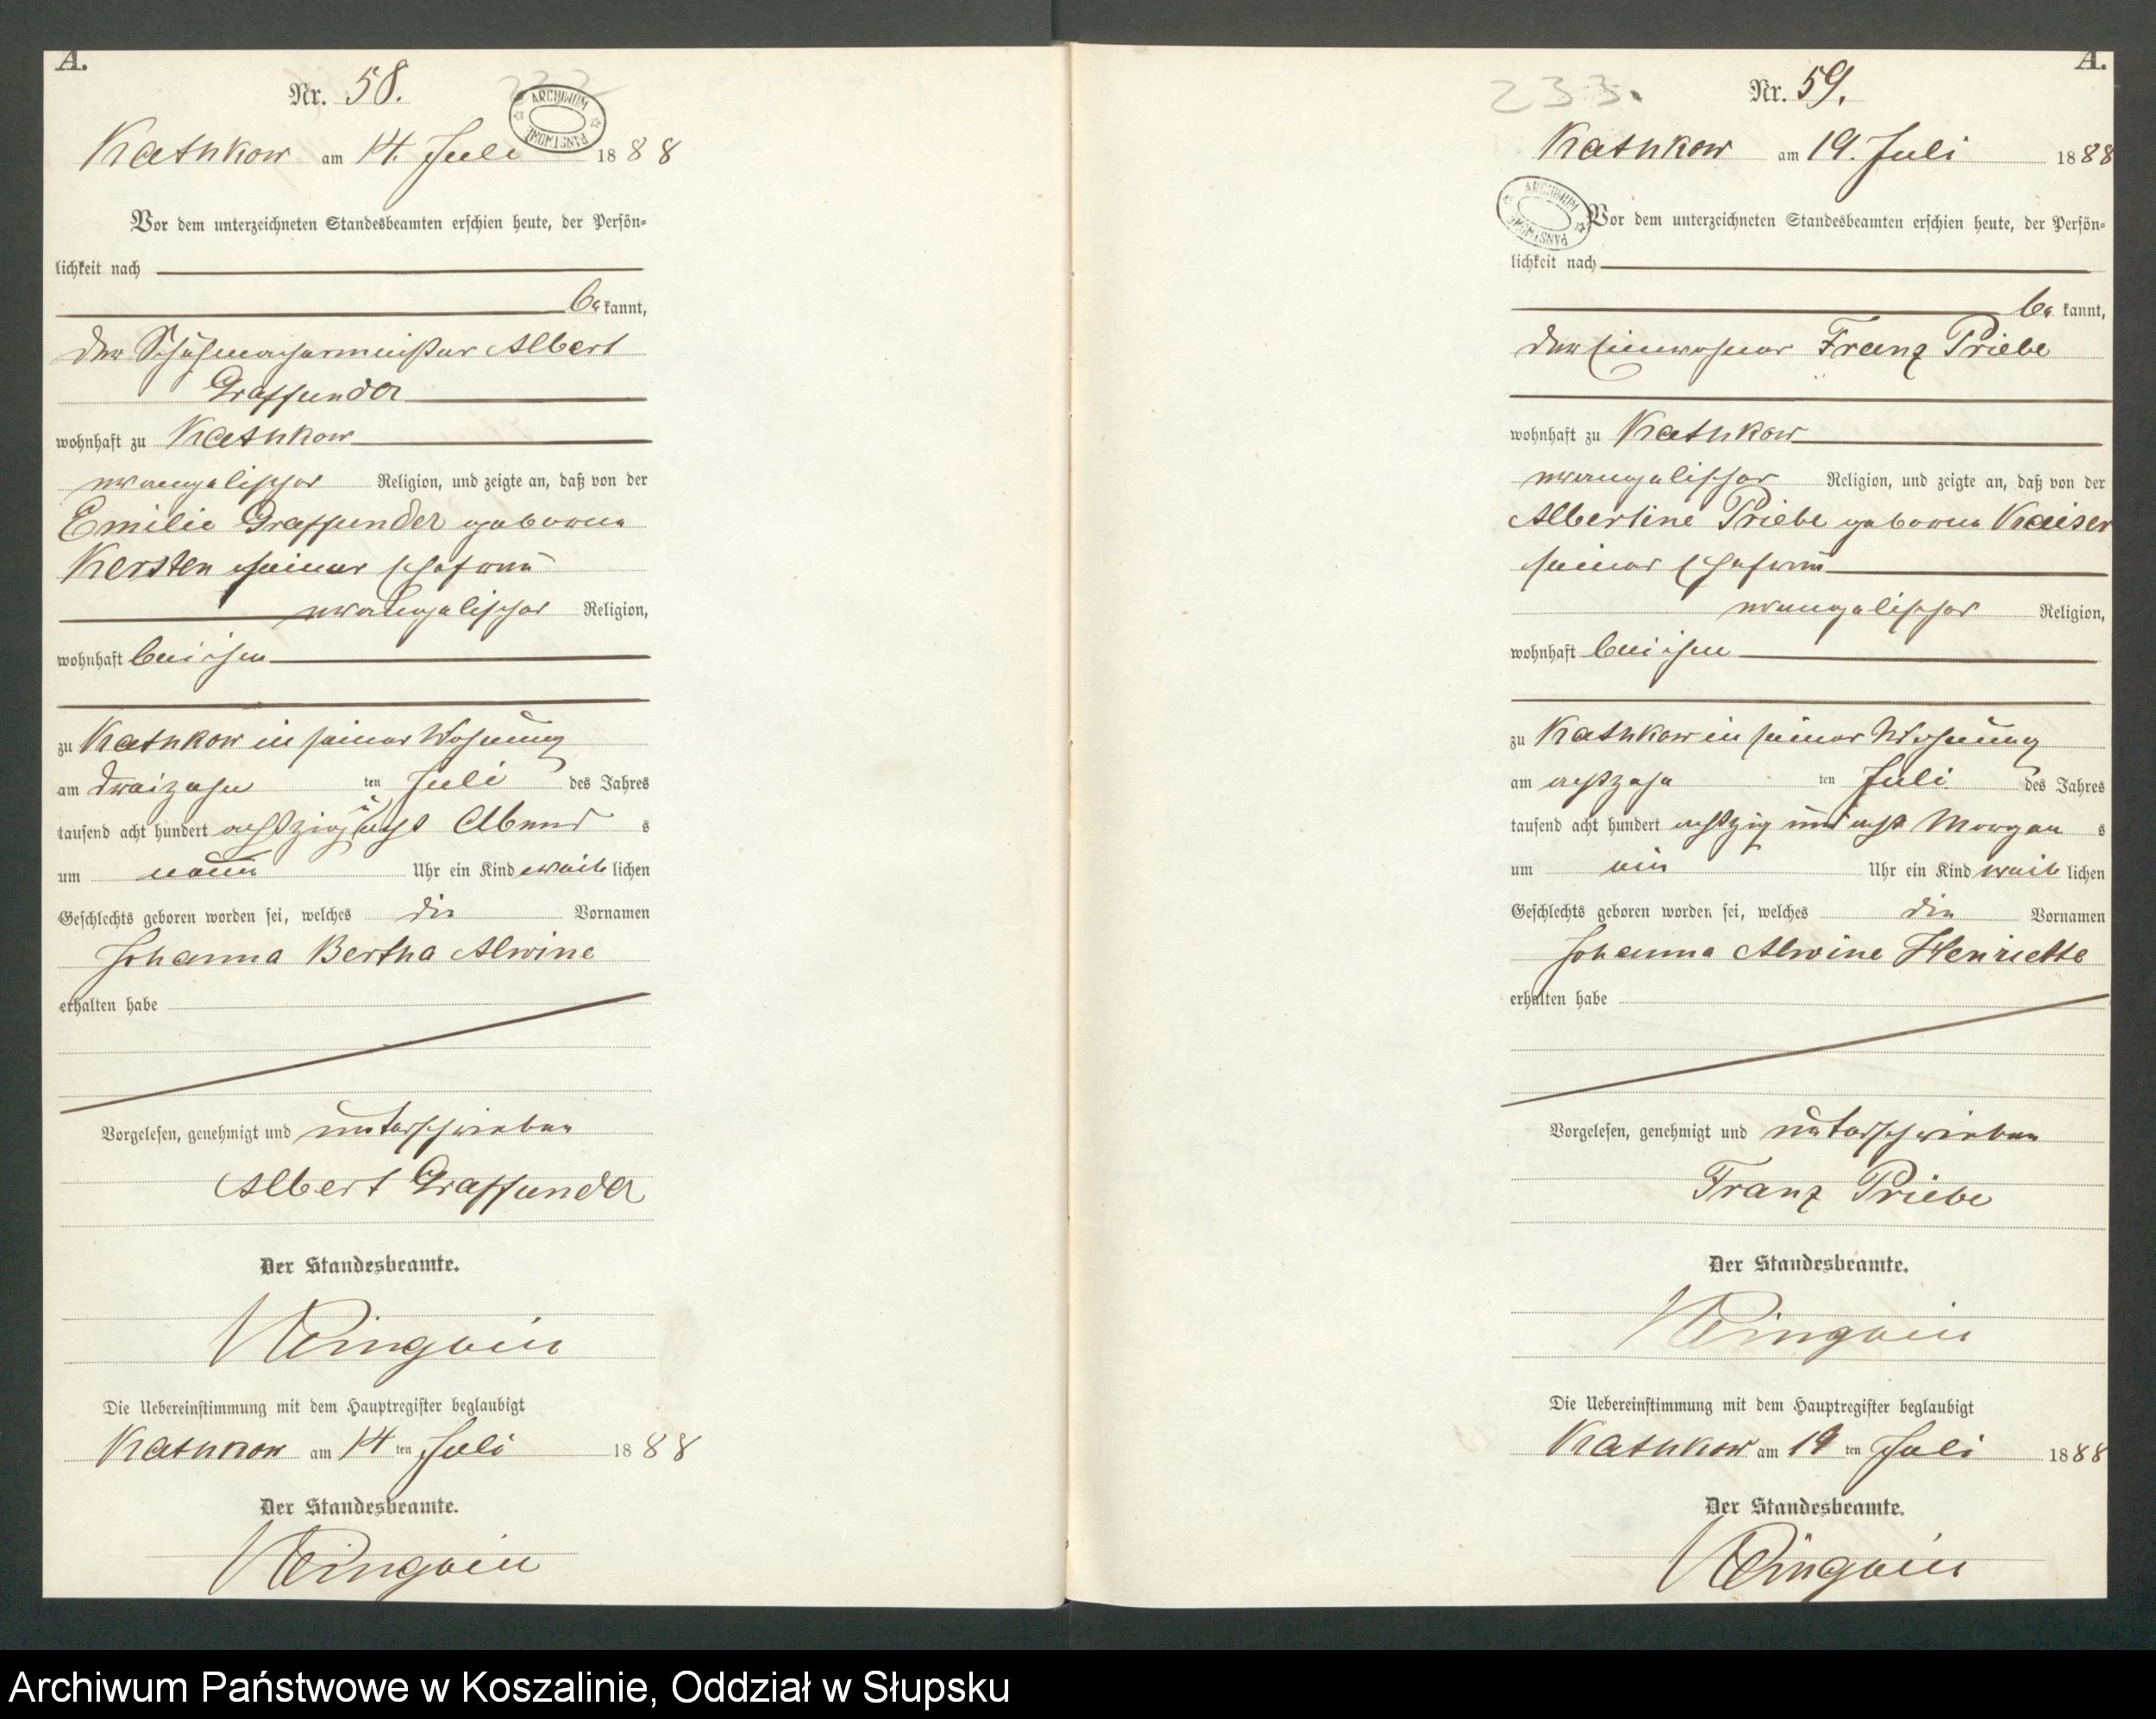 A.
Nr. 58.
232
ARCHIWUM PAŃSTWOWE
Kathkow am 14. Juli 1888
Vor dem unterzeichneten Standesbeamten erschien heute, der Persön-
lichkeit nach
bekannt,
der Schuhmachermeister Albert
Graffunder
wohnhaft zu Kathkow
evangelischer Religion, und zeigte an, daß von der
Emilie Graffunder geborene
Kersten seiner Ehefrau
evangelischer Religion,
wohnhaft bei ihm
zu Kathkow in seiner Wohnung
am dreizehn ten Juli des Jahres
tausend acht hundert achtzig u acht Abends
um neun Uhr ein Kind weiblichen
Geschlechts geboren worden sei, welches die Vornamen
Johanna Bertha Alwine
erhalten habe
Vorgelesen, genehmigt und unterschrieben
Albert Graffunder
Der Standesbeamte.
Die Uebereinstimmung mit dem Hauptregister beglaubigt
Kathkow am 14 ten Juli 1888
Der Standesbeamte.
A.
233.
Nr. 59.
Kathkow am 19. Juli 1888
ARCHIWUM PAŃSTWOWE
Vor dem unterzeichneten Standesbeamten erschien heute, der Persön-
lichkeit nach
bekannt,
der Einwohner Franz Priebe
wohnhaft zu Kathkow
evangelischer Religion, und zeigte an, daß von der
Albertine Priebe geborene Kaiser
seiner Ehefrau
evangelischer Religion,
wohnhaft bei ihm
zu Kathkow in seiner Wohnung
am achtzehn ten Juli des Jahres
tausend acht hundert achtzig und acht Morgens
um ein Uhr ein Kind weiblichen
Geschlechts geboren worden sei, welches die Vornamen
Johanna Alwine Henriette
erhalten habe
Vorgelesen, genehmigt und unterschrieben
Franz Priebe
Der Standesbeamte.
Die Uebereinstimmung mit dem Hauptregister beglaubigt
Kathkow am 19 ten Juli 1888
Der Standesbeamte.
Archiwum Państwowe w Koszalinie, Oddział w Słupsku